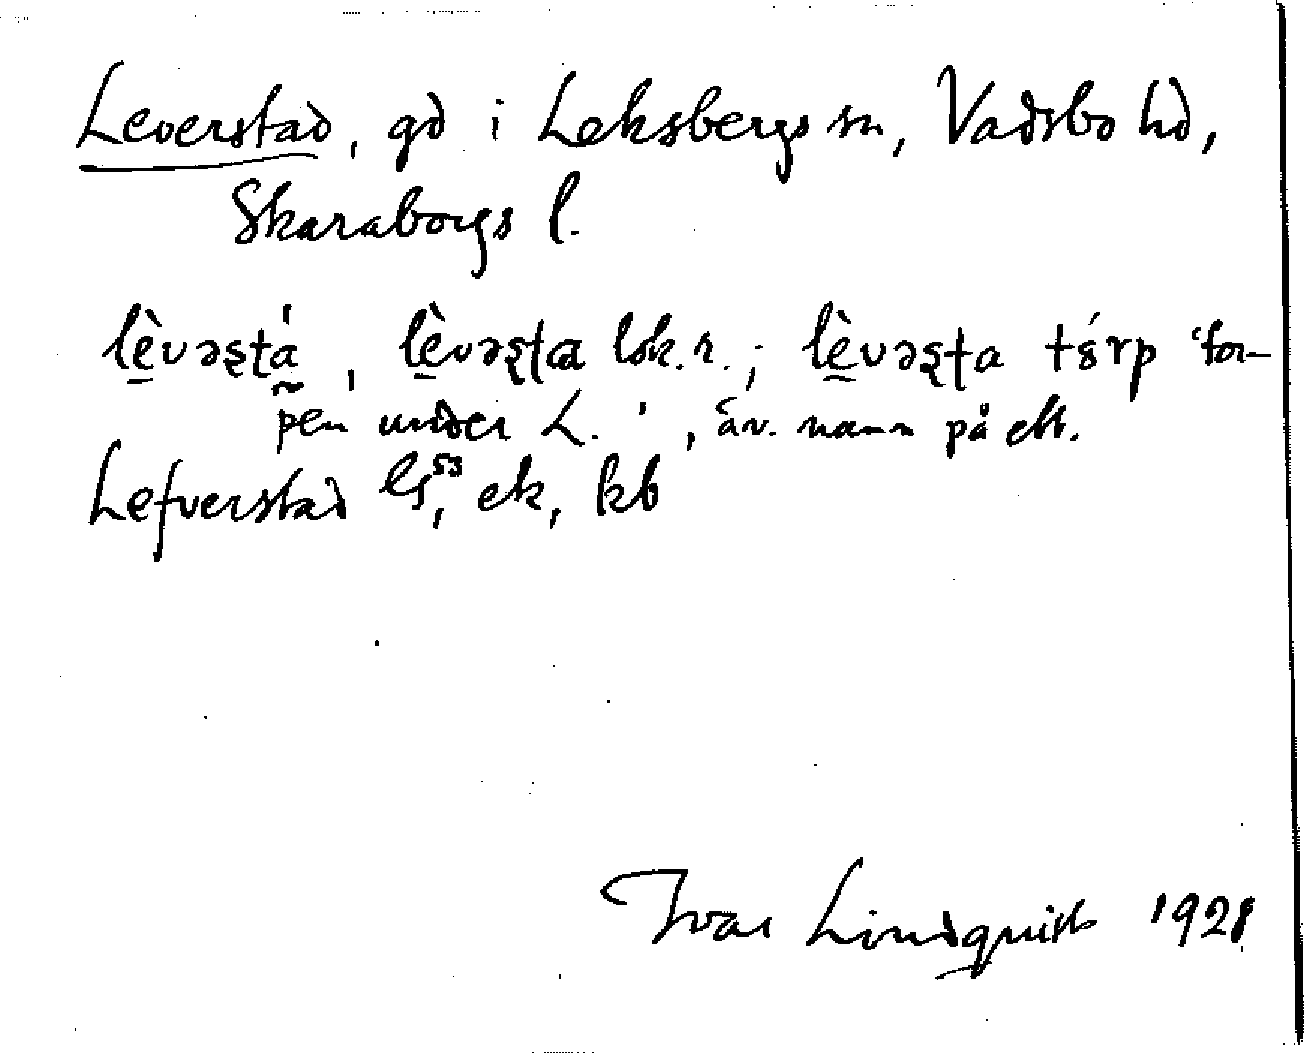 Leverstad, gd i Leksbergs sn, Vadsbo hd,
Skaraborgs l.
lèvəʂtá, lèvəʂta lok. r.; lèvəʂta tórp 'tor-
pen under L.', äv. namn på ett.
Lefverstad G⁵³, ek, kb
Ivar Lindquist 1928